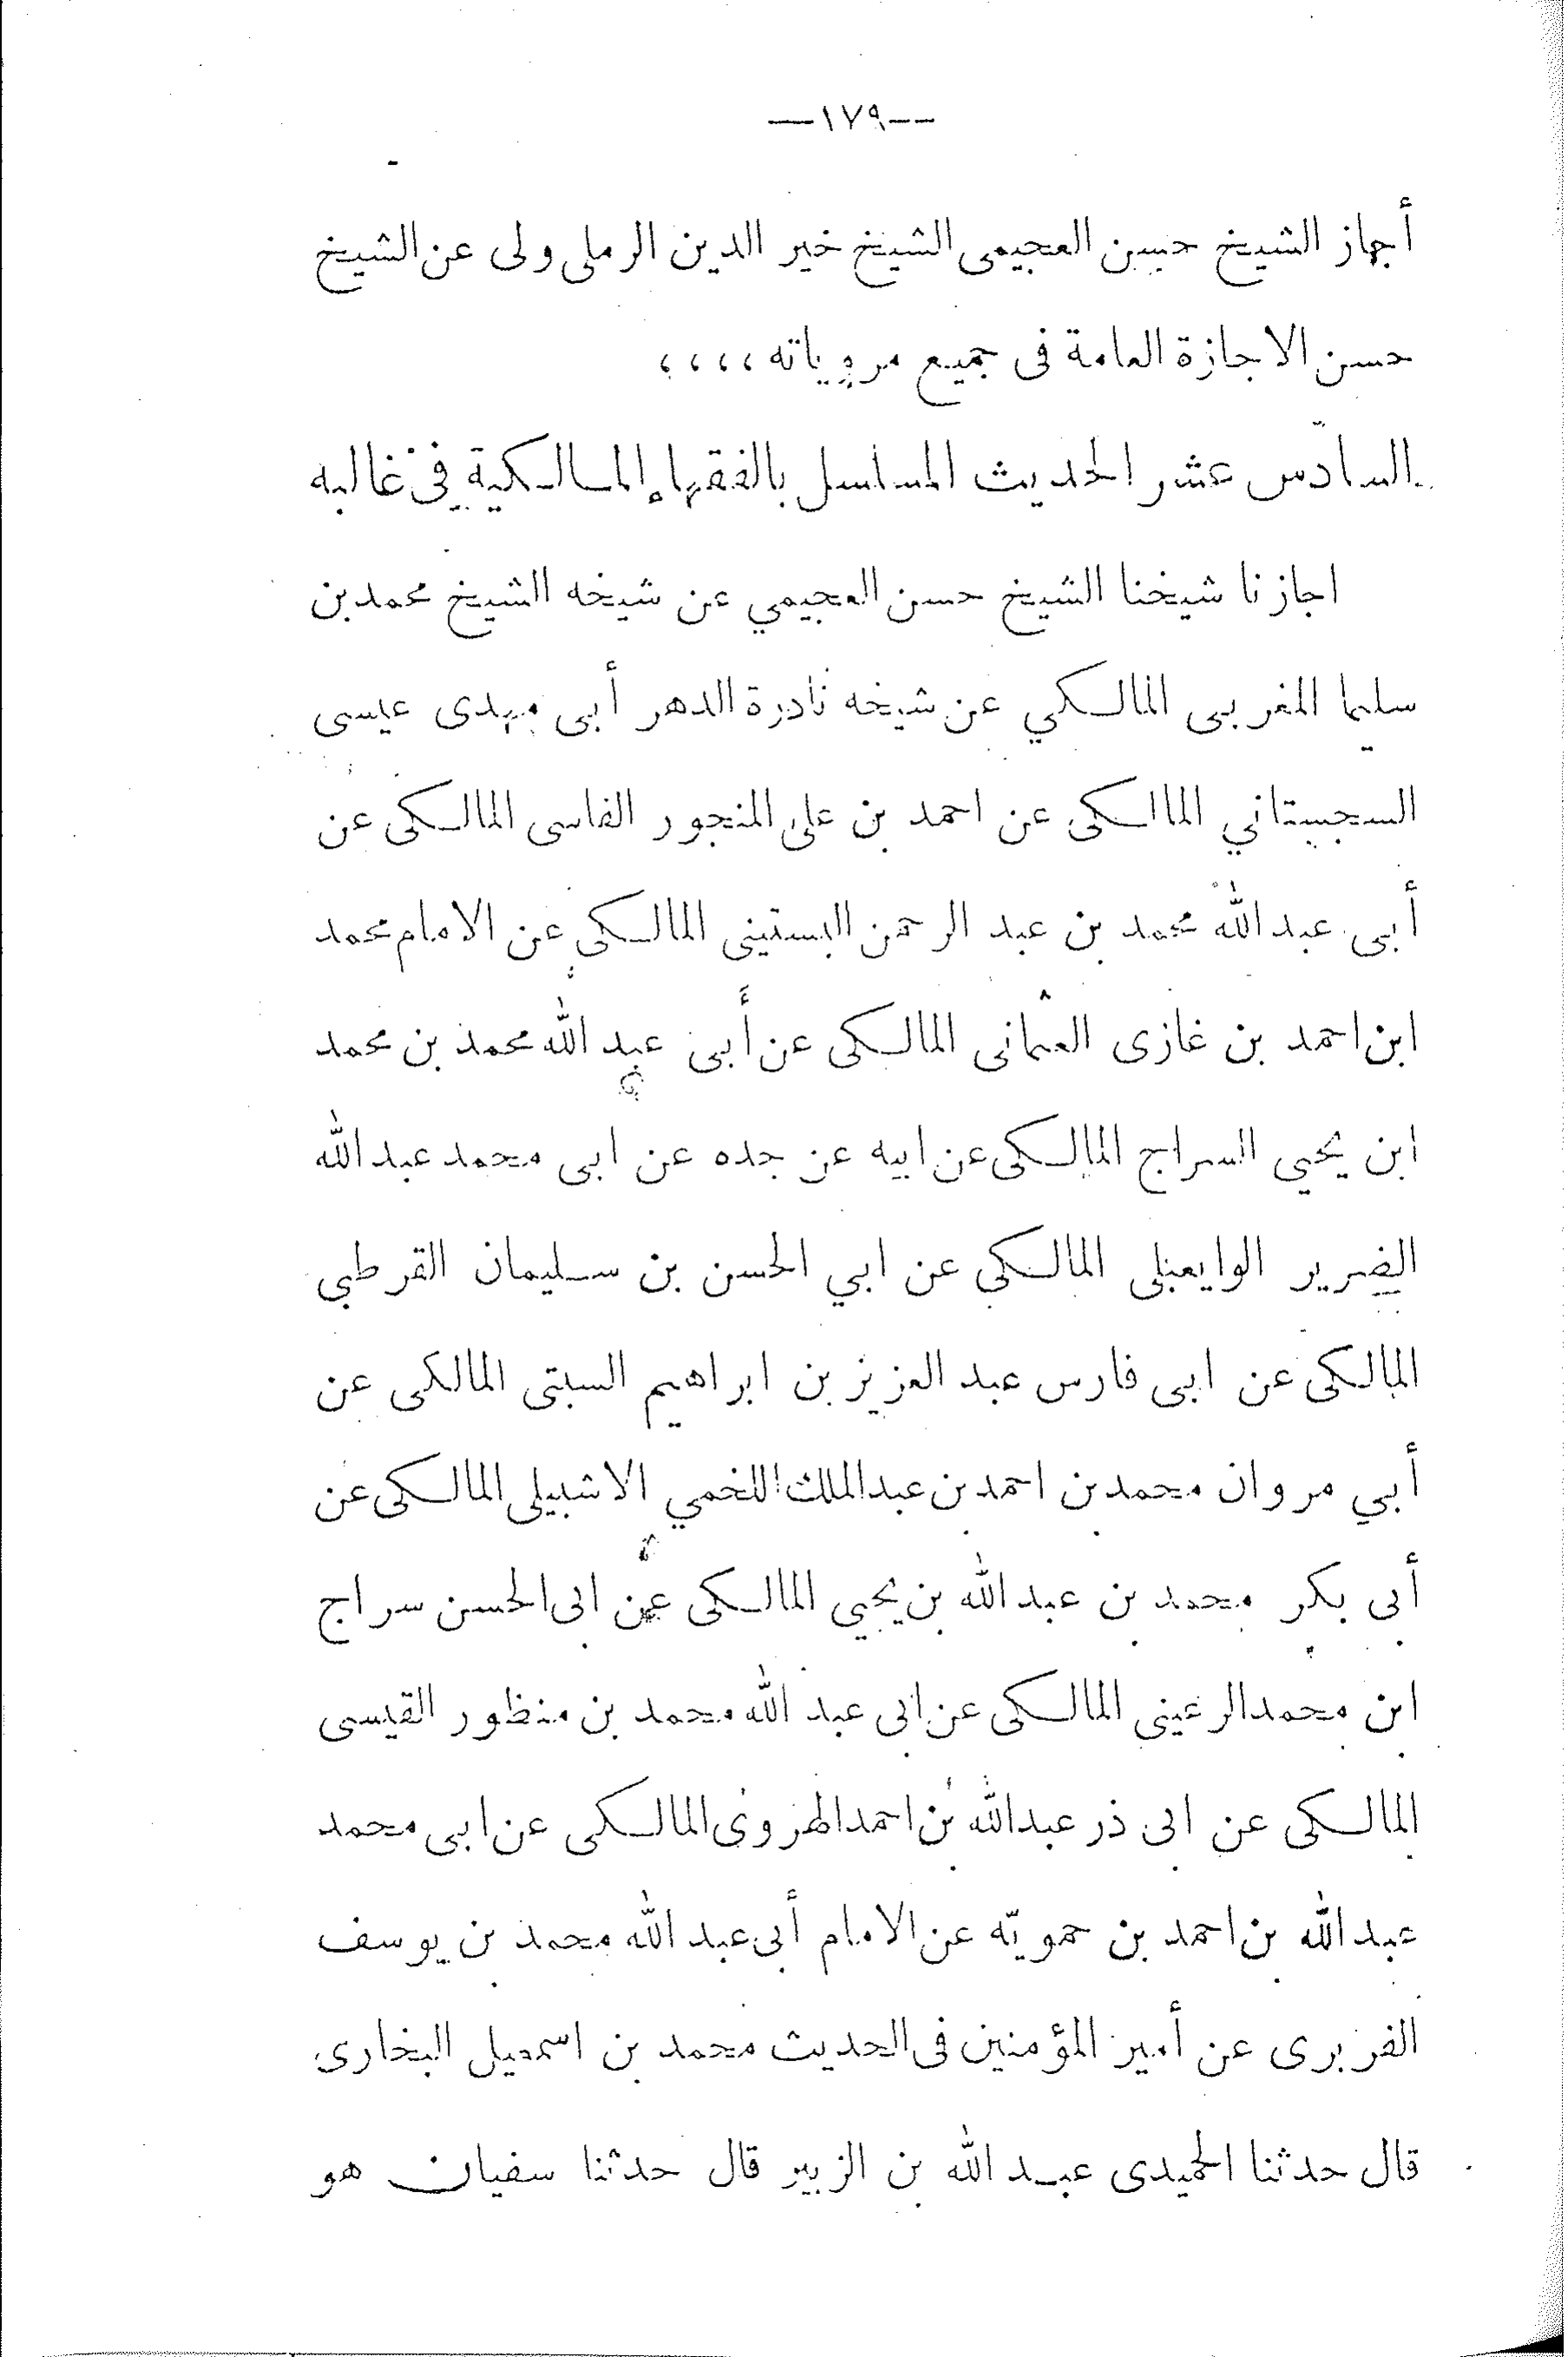 —١٧٩--
أجاز الشيخ حسن العجيمى الشيخ خير الدين الرملى ولى عن الشيخ
حسن الاجازة العامة فى جميع مروياته ،،،،
السادس عشر الحديث المسلسل بالفقهاء المالكية فى غالبه
اجازنا شيخنا الشيخ حسن العجيمي عن شيخه الشيخ محمد بن
سليما المغربى المالكي عن شيخه نادرة الدهر أبى مهدى عيسى
السجستاني الماالكى عن احمد بن على المنجور الفاسى المالكى عن
أبى عبد الله محمد بن عبد الرحمن البستينى المالكى عن الامام محمد
ابن احمد بن غازى العثمانى المالكى عن أبى عبد الله محمد بن محمد
ابن يحيي السراج المالكى عن ابيه عن جده عن ابى محمد عبد الله
الضرير الوايعبلى المالكى عن ابي الحسن بن سليمان القرطبي
المالكى عن ابى فارس عبد العزيز بن ابراهيم السبتى المالكى عن
أبي مروان محمد بن احمد بن عبد الملك اللخمي الاشبيلى المالكى عن
أبى بكر محمد بن عبد الله بن يحيي المالكى عن ابى الحسن سراج
ابن محمد الرعينى المالكى عن ابى عبد الله محمد بن منظور القيسى
المالكى عن ابى ذر عبد الله بن احمد الهروى المالكى عن ابى محمد
عبد الله بن احمد بن حمويّه عن الامام أبى عبد الله محمد بن يوسف
الفربرى عن أمير المؤمنين فى الحديث محمد بن اسمعيل البخارى
قال حدثنا الحميدى عبد الله بن الزبير قال حدثنا سفيان هو